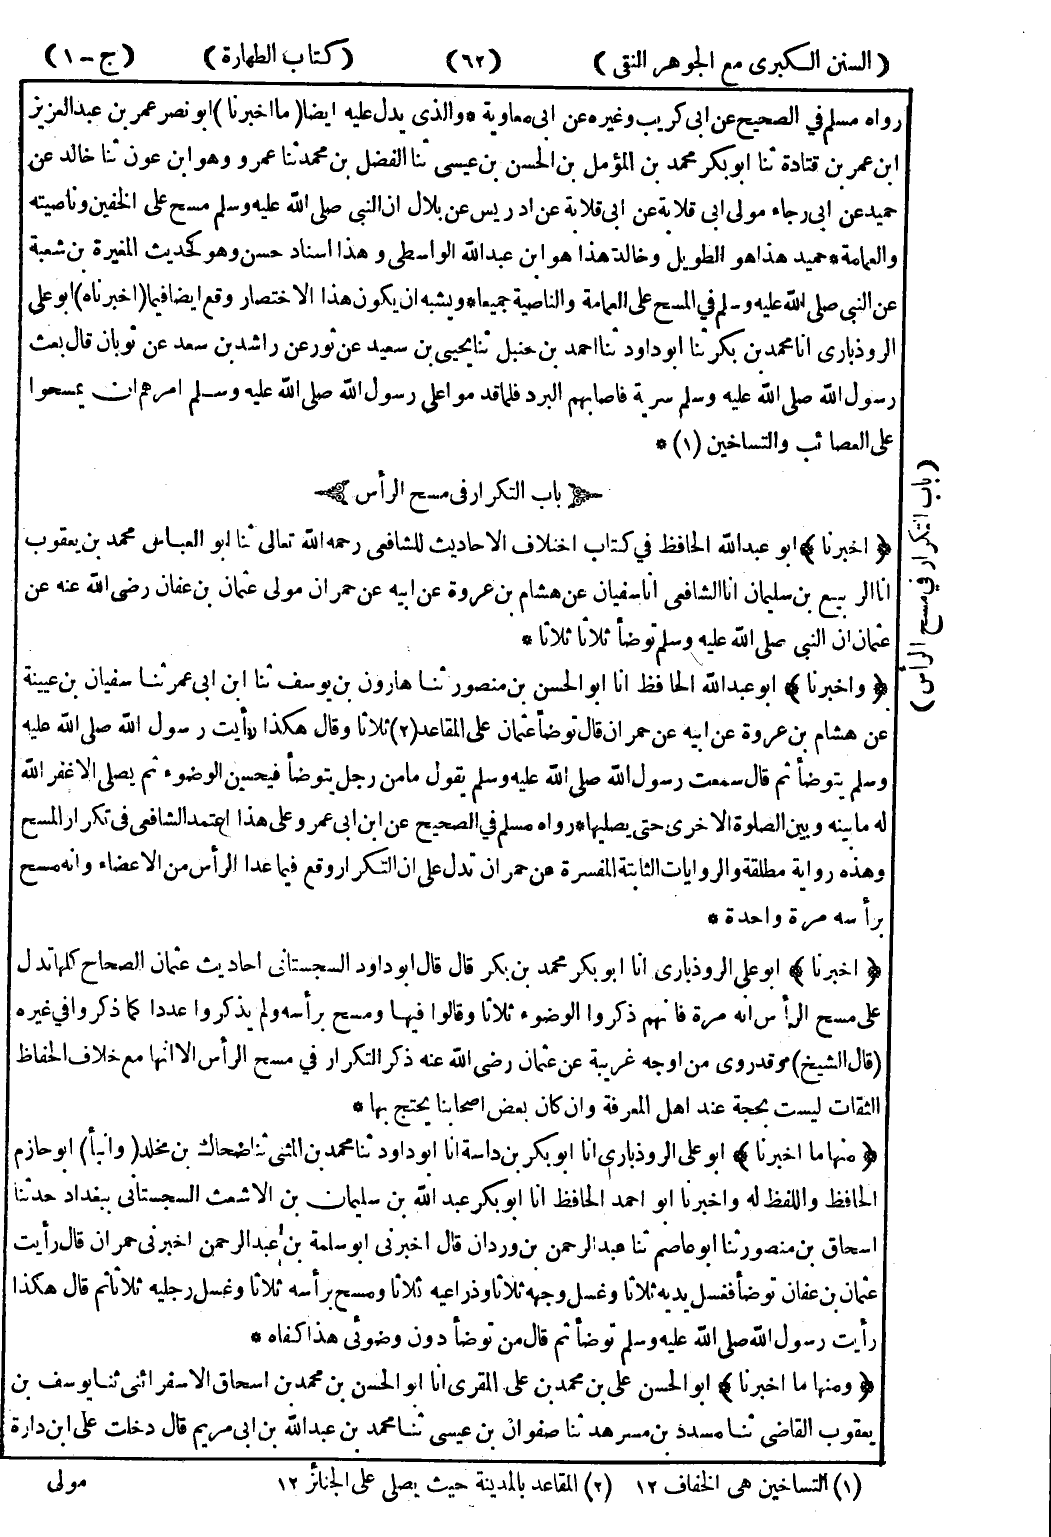 (السنن الكبرى مع الجوهر النقى) (٦٢) (كتاب الطهارة) (ج-١)
رواه مسلم في الصحيح عن ابى كريب وغيره عن ابى معاوية * والذى يدل عليه ايضا (ما اخبرنا) ابو نصر عمر بن عبد العزيز
ابن عمر بن قتادة ثنا ابو بكر محمد بن المؤمل بن الحسن بن عيسى ثنا الفضل بن محمد ثنا عمرو وهو ابن عون ثنا خالد عن
حميد عن ابى رجاء مولى ابى قلابة عن ابى قلابة عن ادريس عن بلال ان النبي صلى الله عليه وسلم مسح على الخفين وناصيته
والعمامة * حميد هذا هو الطويل وخالد هذا هو ابن عبد الله الواسطى وهذا اسناد حسن وهو كحديث المغيرة بن شعبة
عن النبي صلى الله عليه وسلم في المسح على العمامة والناصية جميعا * ويشبه ان يكون هذا الاختصار وقع ايضا فيما (اخبرناه) ابو على
الروذبارى انا محمد بن بكر ثنا ابو داود ثنا احمد بن حنبل ثنا يحيى بن سعيد عن ثور عن راشد بن سعد عن ثوبان قال بعث
رسول الله صلى الله عليه وسلم سرية فاصابهم البرد فلما قدموا على رسول الله صلى الله عليه وسلم امرهم ان يمسحوا
على العصائب والتساخين (١) *
باب التكرار فى مسح الرأس
(باب التكرار في مسح الرأس)
﴿ اخبرنا ﴾ ابو عبد الله الحافظ في كتاب اختلاف الاحاديث للشافعى رحمه الله تعالى ثنا ابو العباس محمد بن يعقوب
انا الربيع بن سليمان انا الشافعى انا سفيان عن هشام بن عروة عن ابيه عن حمران مولى عثمان بن عفان رضى الله عنه عن
عثمان ان النبي صلى الله عليه وسلم توضأ ثلاثا ثلاثا *
﴿ واخبرنا ﴾ ابو عبد الله الحافظ انا ابو الحسن بن منصور ثنا هارون بن يوسف ثنا ابن ابى عمر ثنا سفيان بن عيينة
عن هشام بن عروة عن ابيه عن حمران قال توضأ عثمان على المقاعد (٢) ثلاثا وقال هكذا رأيت رسول الله صلى الله عليه
وسلم يتوضأ ثم قال سمعت رسول الله صلى الله عليه وسلم يقول ما من رجل يتوضأ فيحسن الوضوء ثم يصلى الا غفر الله
له ما بينه وبين الصلوة الاخرى حتى يصليها * رواه مسلم في الصحيح عن ابن ابى عمر وعلى هذا اعتمد الشافعى فى تكرار المسح
وهذه رواية مطلقة والروايات الثابتة المفسرة عن حمران تدل على ان التكرار وقع فيما عدا الرأس من الاعضاء وانه مسح
برأسه مرة واحدة *
﴿ اخبرنا ﴾ ابو على الروذبارى انا ابو بكر محمد بن بكر قال قال ابو داود السجستانى احاديث عثمان الصحاح كلها تدل
على مسح الرأس انه مرة فانهم ذكروا الوضوء ثلاثا وقالوا فيها ومسح برأسه ولم يذكروا عددا كما ذكروا في غيره
(قال الشيخ) وقد روى من اوجه غريبة عن عثمان رضى الله عنه ذكر التكرار في مسح الرأس الا انها مع خلاف الحفاظ
الثقات ليست بحجة عند اهل المعرفة وان كان بعض اصحابنا يحتج بها *
﴿ منها ما اخبرنا ﴾ ابو على الروذبارى انا ابو بكر بن داسة انا ابو داود ثنا محمد بن المثنى ثنا ضحاك بن مخلد (وانبأ) ابو حازم
الحافظ واللفظ له واخبرنا ابو احمد الحافظ انا ابو بكر عبد الله بن سليمان بن الاشعث السجستانى ببغداد حدثنا
اسحاق بن منصور ثنا ابو عاصم ثنا عبد الرحمن بن وردان قال اخبرنى ابو سلمة بن عبد الرحمن اخبرنى حمران قال رأيت
عثمان بن عفان توضأ فغسل يديه ثلاثا وغسل وجهه ثلاثا وذراعيه ثلاثا ومسح برأسه ثلاثا وغسل رجليه ثلاثا ثم قال هكذا
رأيت رسول الله صلى الله عليه وسلم توضأ ثم قال من توضأ دون وضوئى هذا كفاه *
﴿ ومنها ما اخبرنا ﴾ ابو الحسن على بن محمد بن على المقرى انا ابو الحسن بن محمد بن اسحاق الاسفرائنى ثنا يوسف بن
يعقوب القاضى ثنا مسدد بن مسرهد ثنا صفوان بن عيسى ثنا محمد بن عبد الله بن ابى مريم قال دخلت على ابن دارة
(١) التساخين هى الخفاف ١٢ (٢) المقاعد بالمدينة حيث يصلى على الجنائز ١٢ مولى